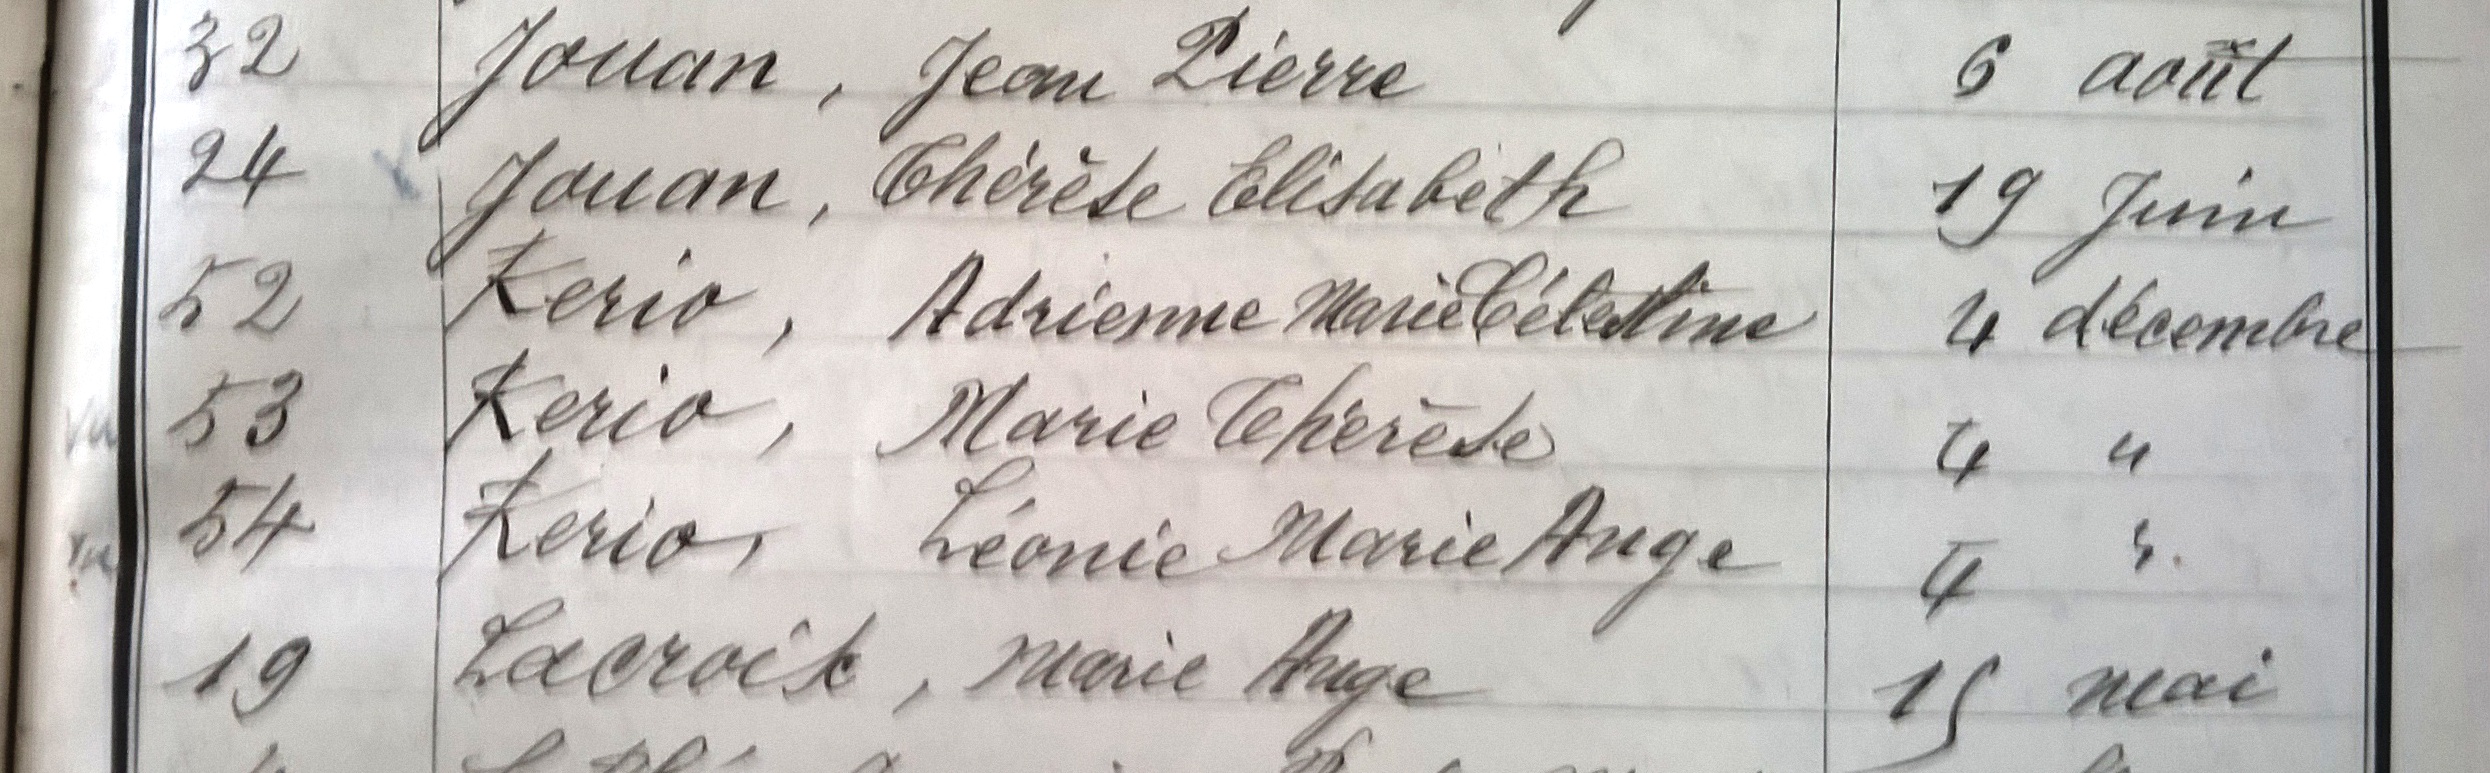 32 Jouan, Jean Pierre 6 août
24 Jouan, Thérèse Elisabeth 19 Juin
52 Kerio, Adrienne Marie Célestine 4 décembre
vu 53 Kerio, Marie Thérèse 4 "
vu 54 Kerio, Léonie Marie Ange 4 "
19 Lacroix, Marie Ange 15 mai